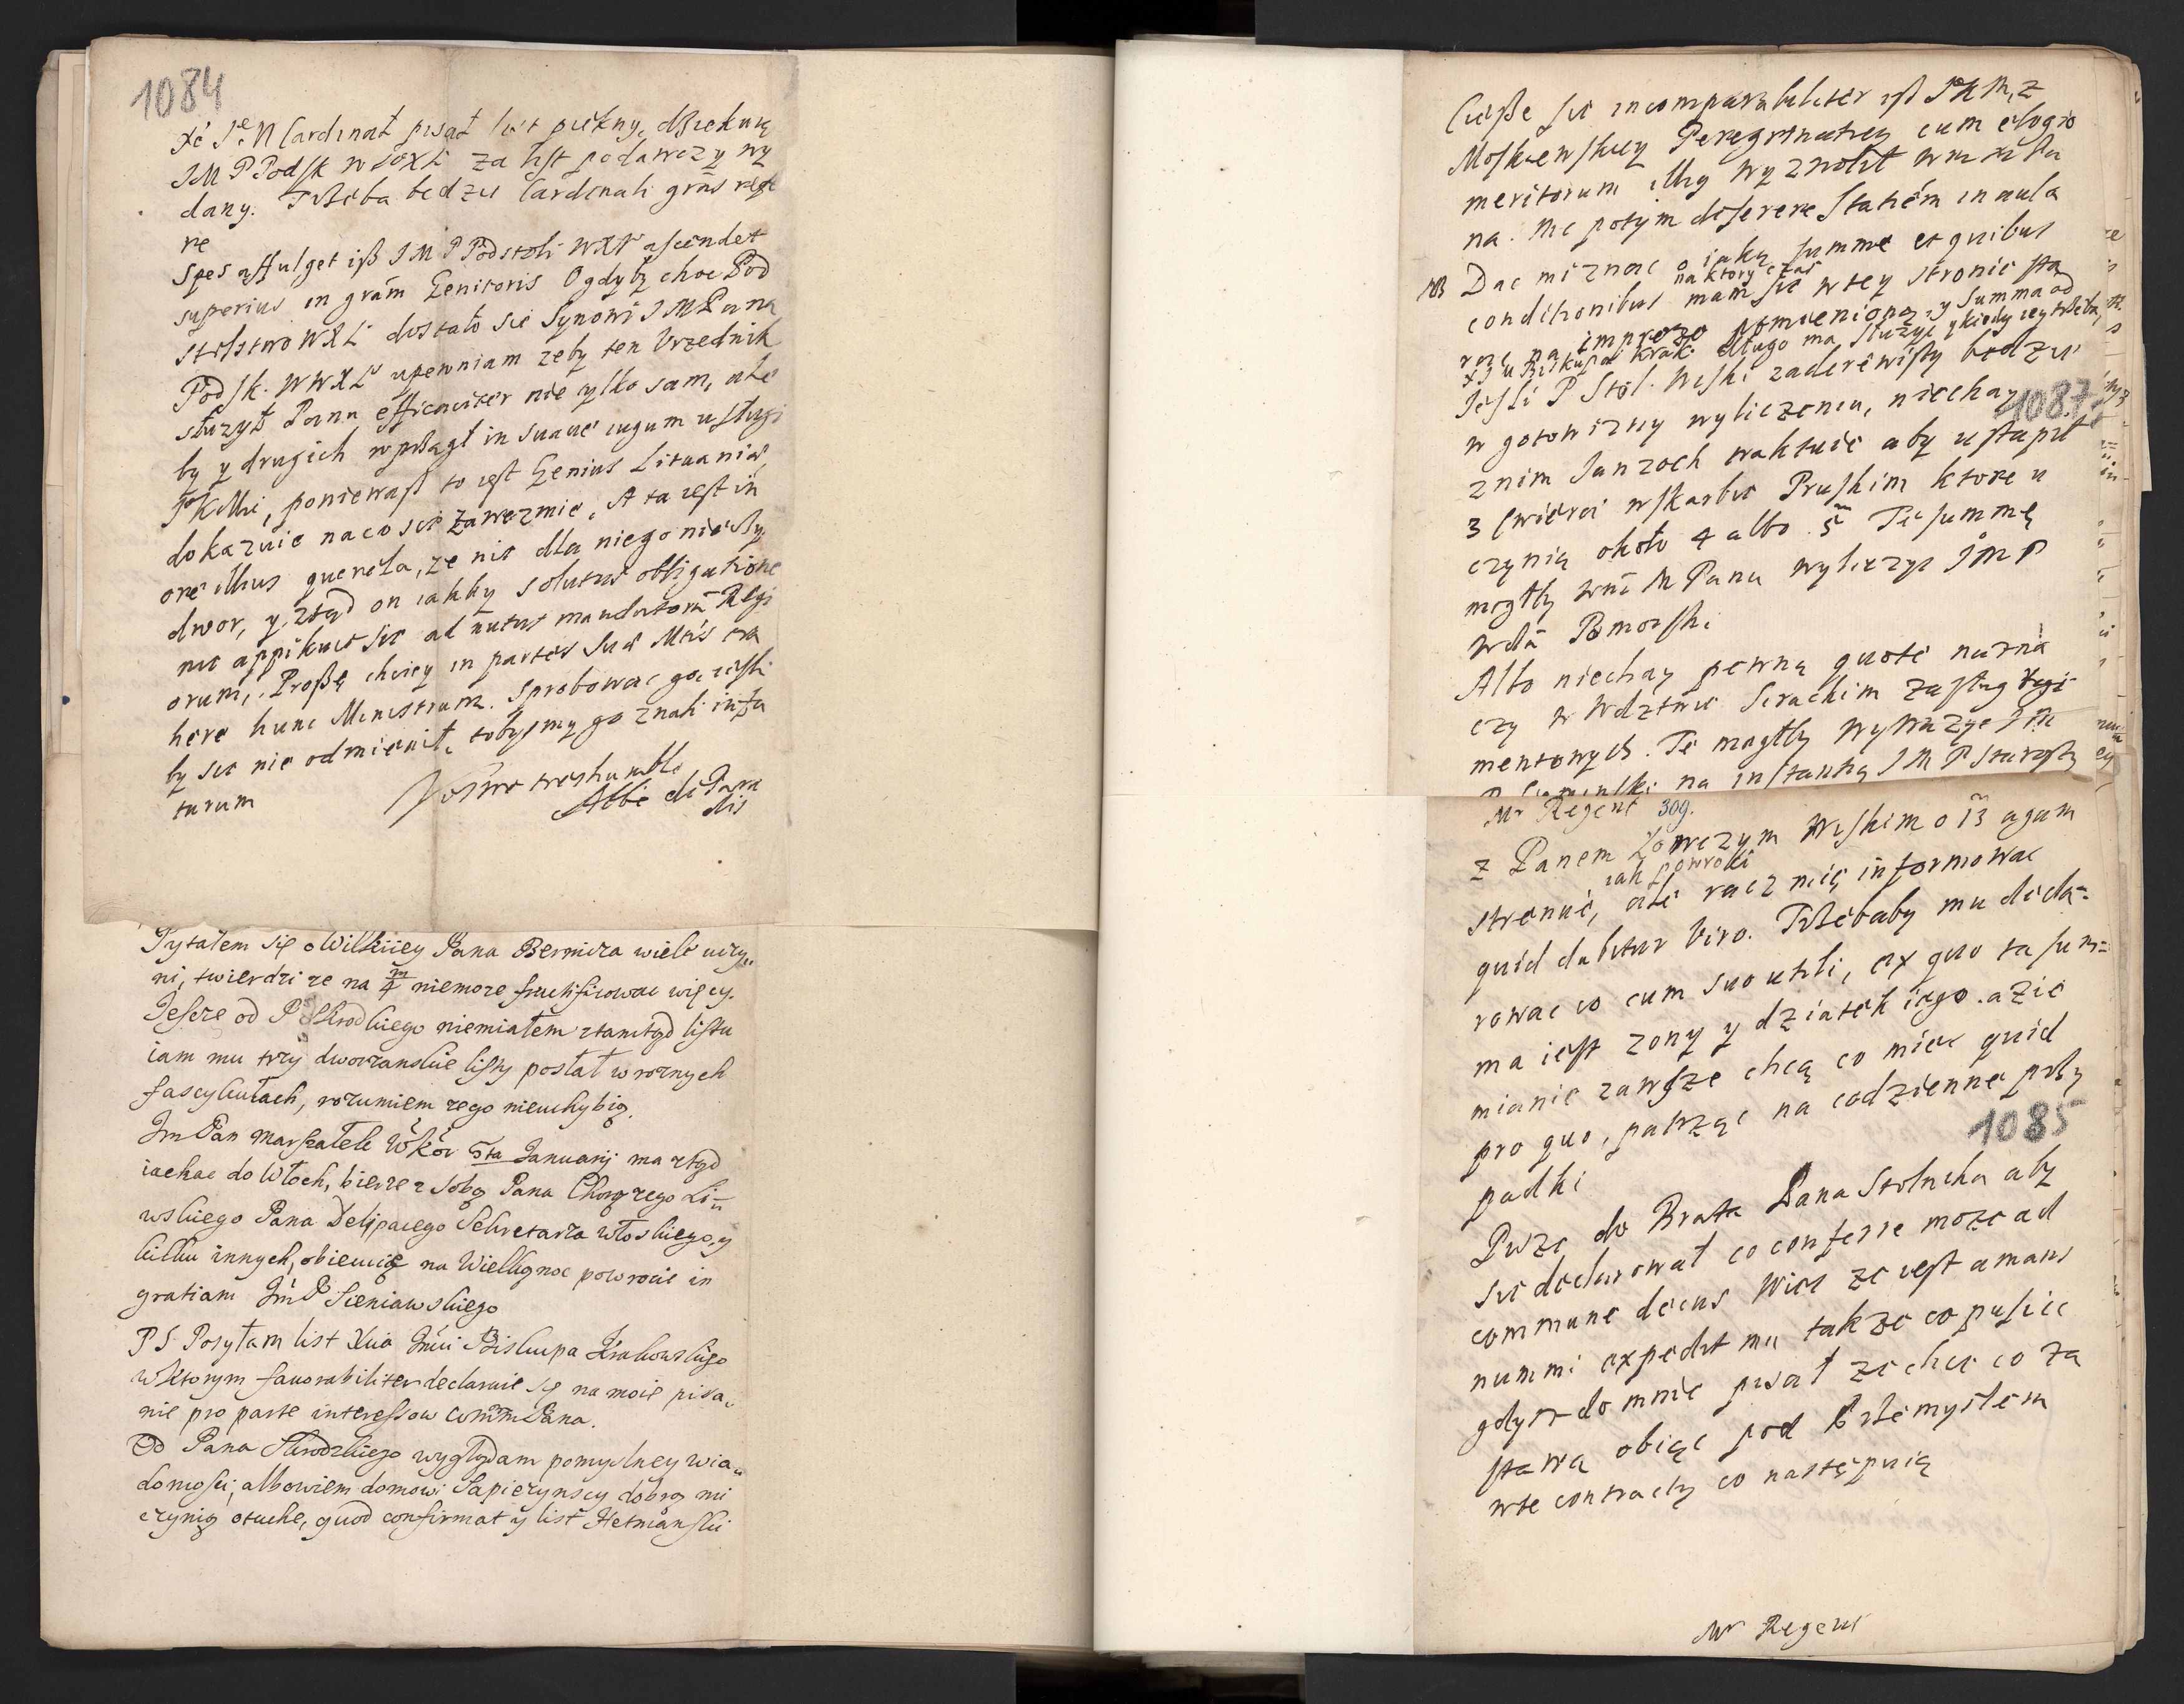 1084
że Je. M Cardinał pisał list piękny, dziękuią
JM P Podsk WoXL za list podawczy wy
dany. Trzeba będzie Cardinali gras refe
re
Spes affulget iß JM P Podstoli WXL ascendet
superius in gram Genitoris Ogdyby choc Pod
stolstwo WXL dostało sie Synowi JMPana
Podsk. WWXL upewniam zeby ten Urzednik
słuzył Panu efficaciter nie tylko sam, ale
by y drugich wprzągł in suave iugum usługi
JKMci, poniewaß to iest Genius Lituaniae,
dokazuie na co się zawezmie. A ta iest in
ore illius querela, ze nic dla niego nieczy
dwor, y ztąd on iakby solutus obligatione
nie appikuie sie ad nutus mandatorum Regi
orum, Proßę chciey in partes Suae Mtis tra
here hunc Ministrum. Sprobowac go, iesli
by sie nie odmienił, tobysmy go znali in fu
turum
Votre tres humble
Abbé de Para
dis
Pytałem się o Wilkiiey Pana Bernicza wiele uczy,,
ni, twierdzi ze na m/4 niemoze fructificowac więcy.
Jescze od P Skrodzkiego niemiałem ztamtąd listu
iam mu trzy dworzanskie listy posłał w roznych
fascykułach, rozumiem zego nieuchybią.
Jm Pan Marszałek WKor 5ta Januarij ma ztąd
iachac do Włoch, bierze z sobą Pana Chorązego Li=
wskiego Pana Delipacego Sekretarza włoskiego, y
kilku innych, obiecuię na Wielkąnoc powrocic in
gratiam Jm P Sieniawskiego
PS Posyłam list Xcia Jmci Biskupa Krakowskigo
w ktorym favorabiliter declaruie się na moie pisa,
nie pro parte interessow Wmm Pana.
Od Pana Skrodzkiego wyglądam pomyslney wia,,
domosci, albowiem domowi Sapiezynscy dobrą mi
czynią otuche, quod confirmat y list Hetmanski
Ciesze sie incomparabiliter iß JKM, z
Moskiewskiey Peregrinatiey cum elogio
meritorum illius wyzwolił
na. Nie potym deserere Statiem in aula
NB Dac mi znac o iaką summe et quibus
na ktory czas
conditionibus mam sie w tey stronie sta
rac na imprezę pomienioną, y Summa od
XJ u Biskupa Krak: długo ma słuzyc y kiedy iey trzeba,
Jesli P Stol. Wiski zaderewisty będzie
w gotowizny wyliczeniu, niechay
1087
znim Janzoch traktuie aby ustąpił
3 Cwierci wskarbie Pruskim ktore u
czynią około 4 albo 5m Tę summę
mogłby wmM Panu wyliczyc JmP
Wda Pomorski
Albo niechay pewną quote nazna
czy w Wdztwie Sirackim zasług regi
mentowych. Te mogłby wywazyc JM
na instantią JM P Starosty
Mr Regent 309.
z Panem Łowczym Wiskim o 13 agam
iak powroci
strenue, ale racz mię informowac
quid dabitur Viro. Trzebaby mu decla=
rowac co cum suo utili, ex quo ta sum=
ma iest zony y dziatek iego. a Zie
mianie zawsze chcą co miec quid
pro quo, patrząc na codzienne przy
1085
padki
Pisze do Brata Pana Stolnika aby
sie declarował co conferre moze ad
commune decus Wiec ze iest amans
nummi expedit mu takze co puscic
gdyz do mnie pisał ze chce co za
stawą obiąc pod Przemyslem
w te contracty co następuią
Mr Regent